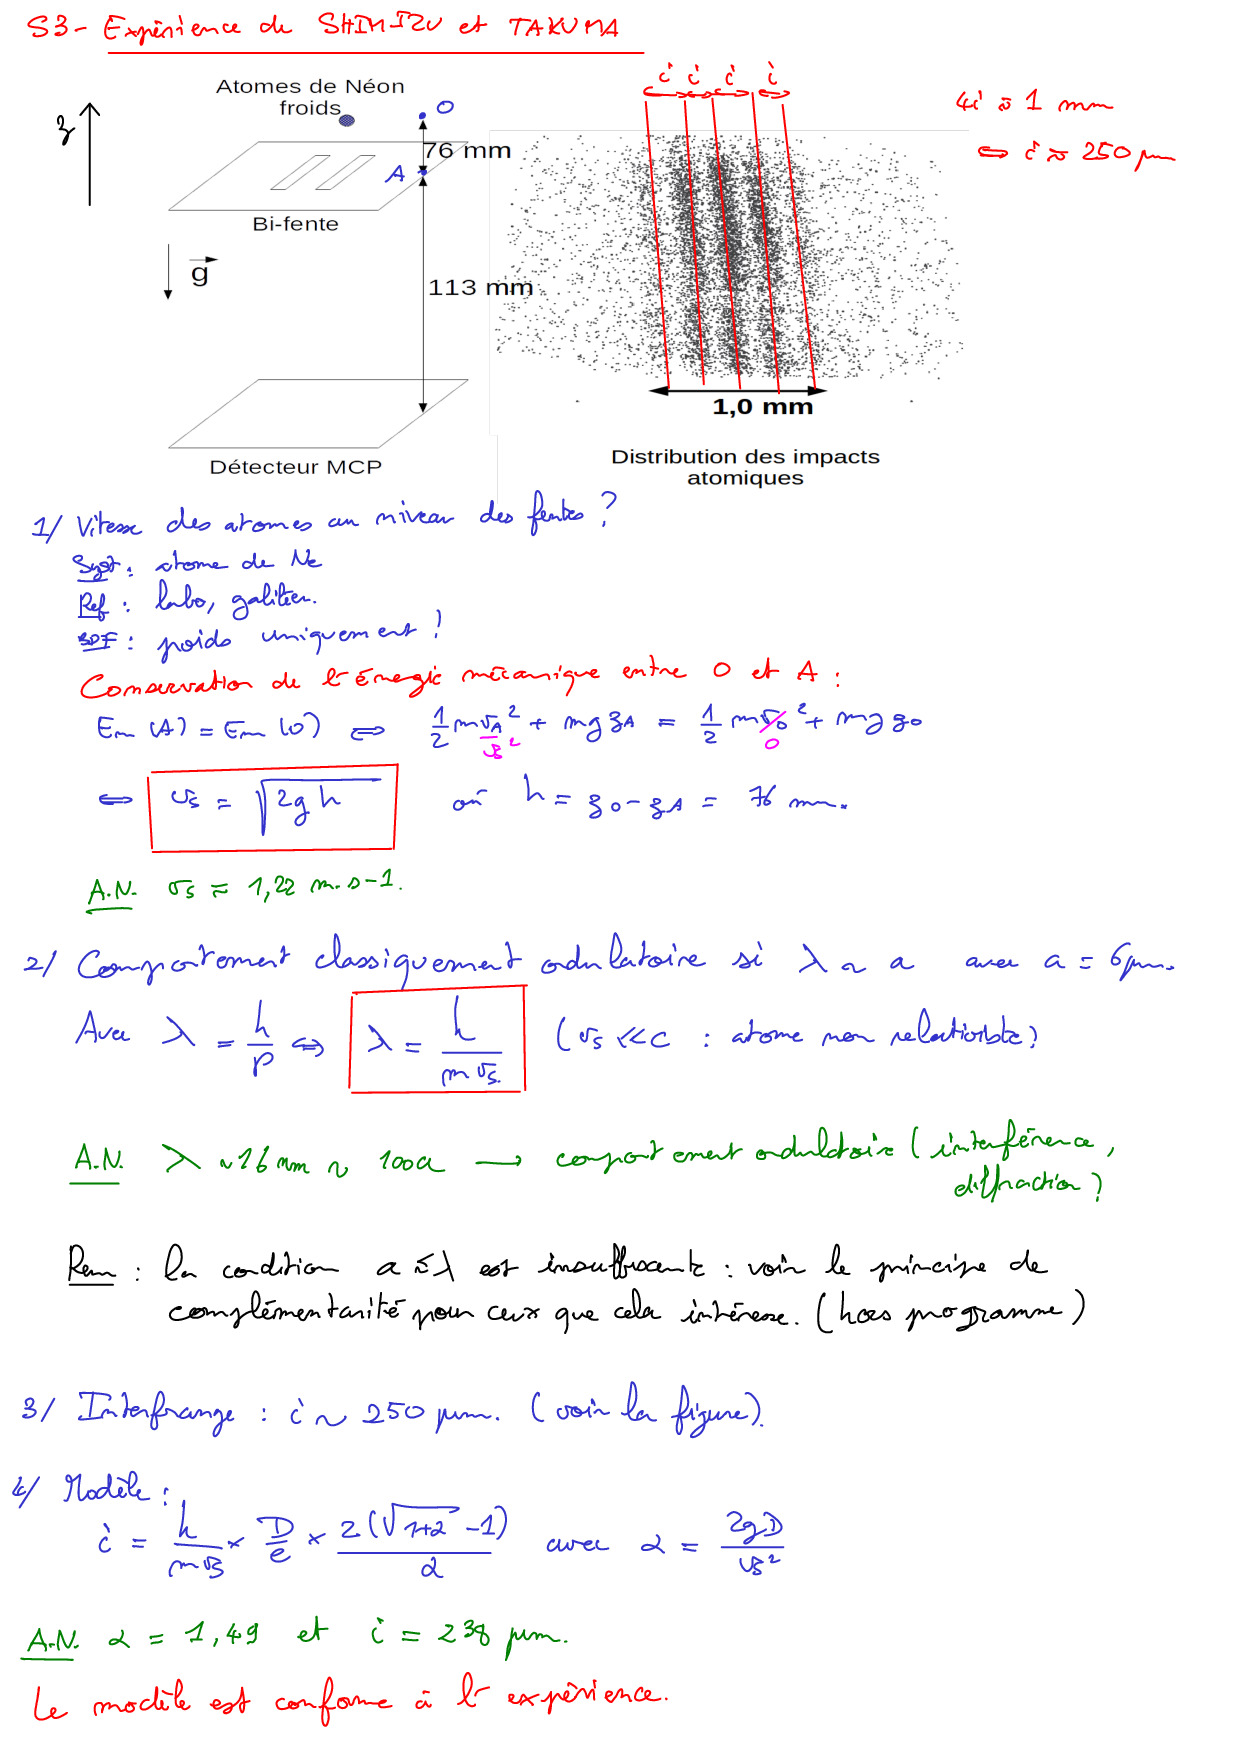 S3- Expérience de SHIMIZU et TAKUMA
Atomes de Néon
froids
O
76 mm
A
z
Bi-fente
g
113 mm
Détecteur MCP
i i i i
4i ≈ 1 mm
⇔ i ≈ 250 µm
1,0 mm
Distribution des impacts
atomiques
1/ Vitesse des atomes au niveau des fentes ?
Syst : atome de Ne
Ref : labo, galiléen.
BDF : poids uniquement !
Conservation de l'énergie mécanique entre O et A :
Em (A) = Em (O) ⇔ 1/2 m vA² + mg zA = 1/2 m v0² + mg z0
vs² 0
⇔ vs = √2gh où h = zO - zA = 76 mm.
A.N. vs ≈ 1,22 m.s-1.
2/ Comportement classiquement ondulatoire si λ ~ a avec a = 6µm.
Avec λ = h/p ⇔ λ = h/(m vs) (vs << c : atome non relativiste)
A.N. λ ~ 16 nm ~ 100a → comportement ondulatoire (interférence,
diffraction)
Rem : la condition a ≤ λ est insuffisante : voir le principe de
complémentarité pour ceux que cela intéresse. (hors programme)
3/ Interfrange : i ~ 250 µm. (voir la figure).
4/ Modèle :
i = h/(m vs) × D/e × 2(√1+α - 1)/α avec α = 2gD/vs²
A.N. α = 1,49 et i = 238 µm.
Le modèle est conforme à l'expérience.